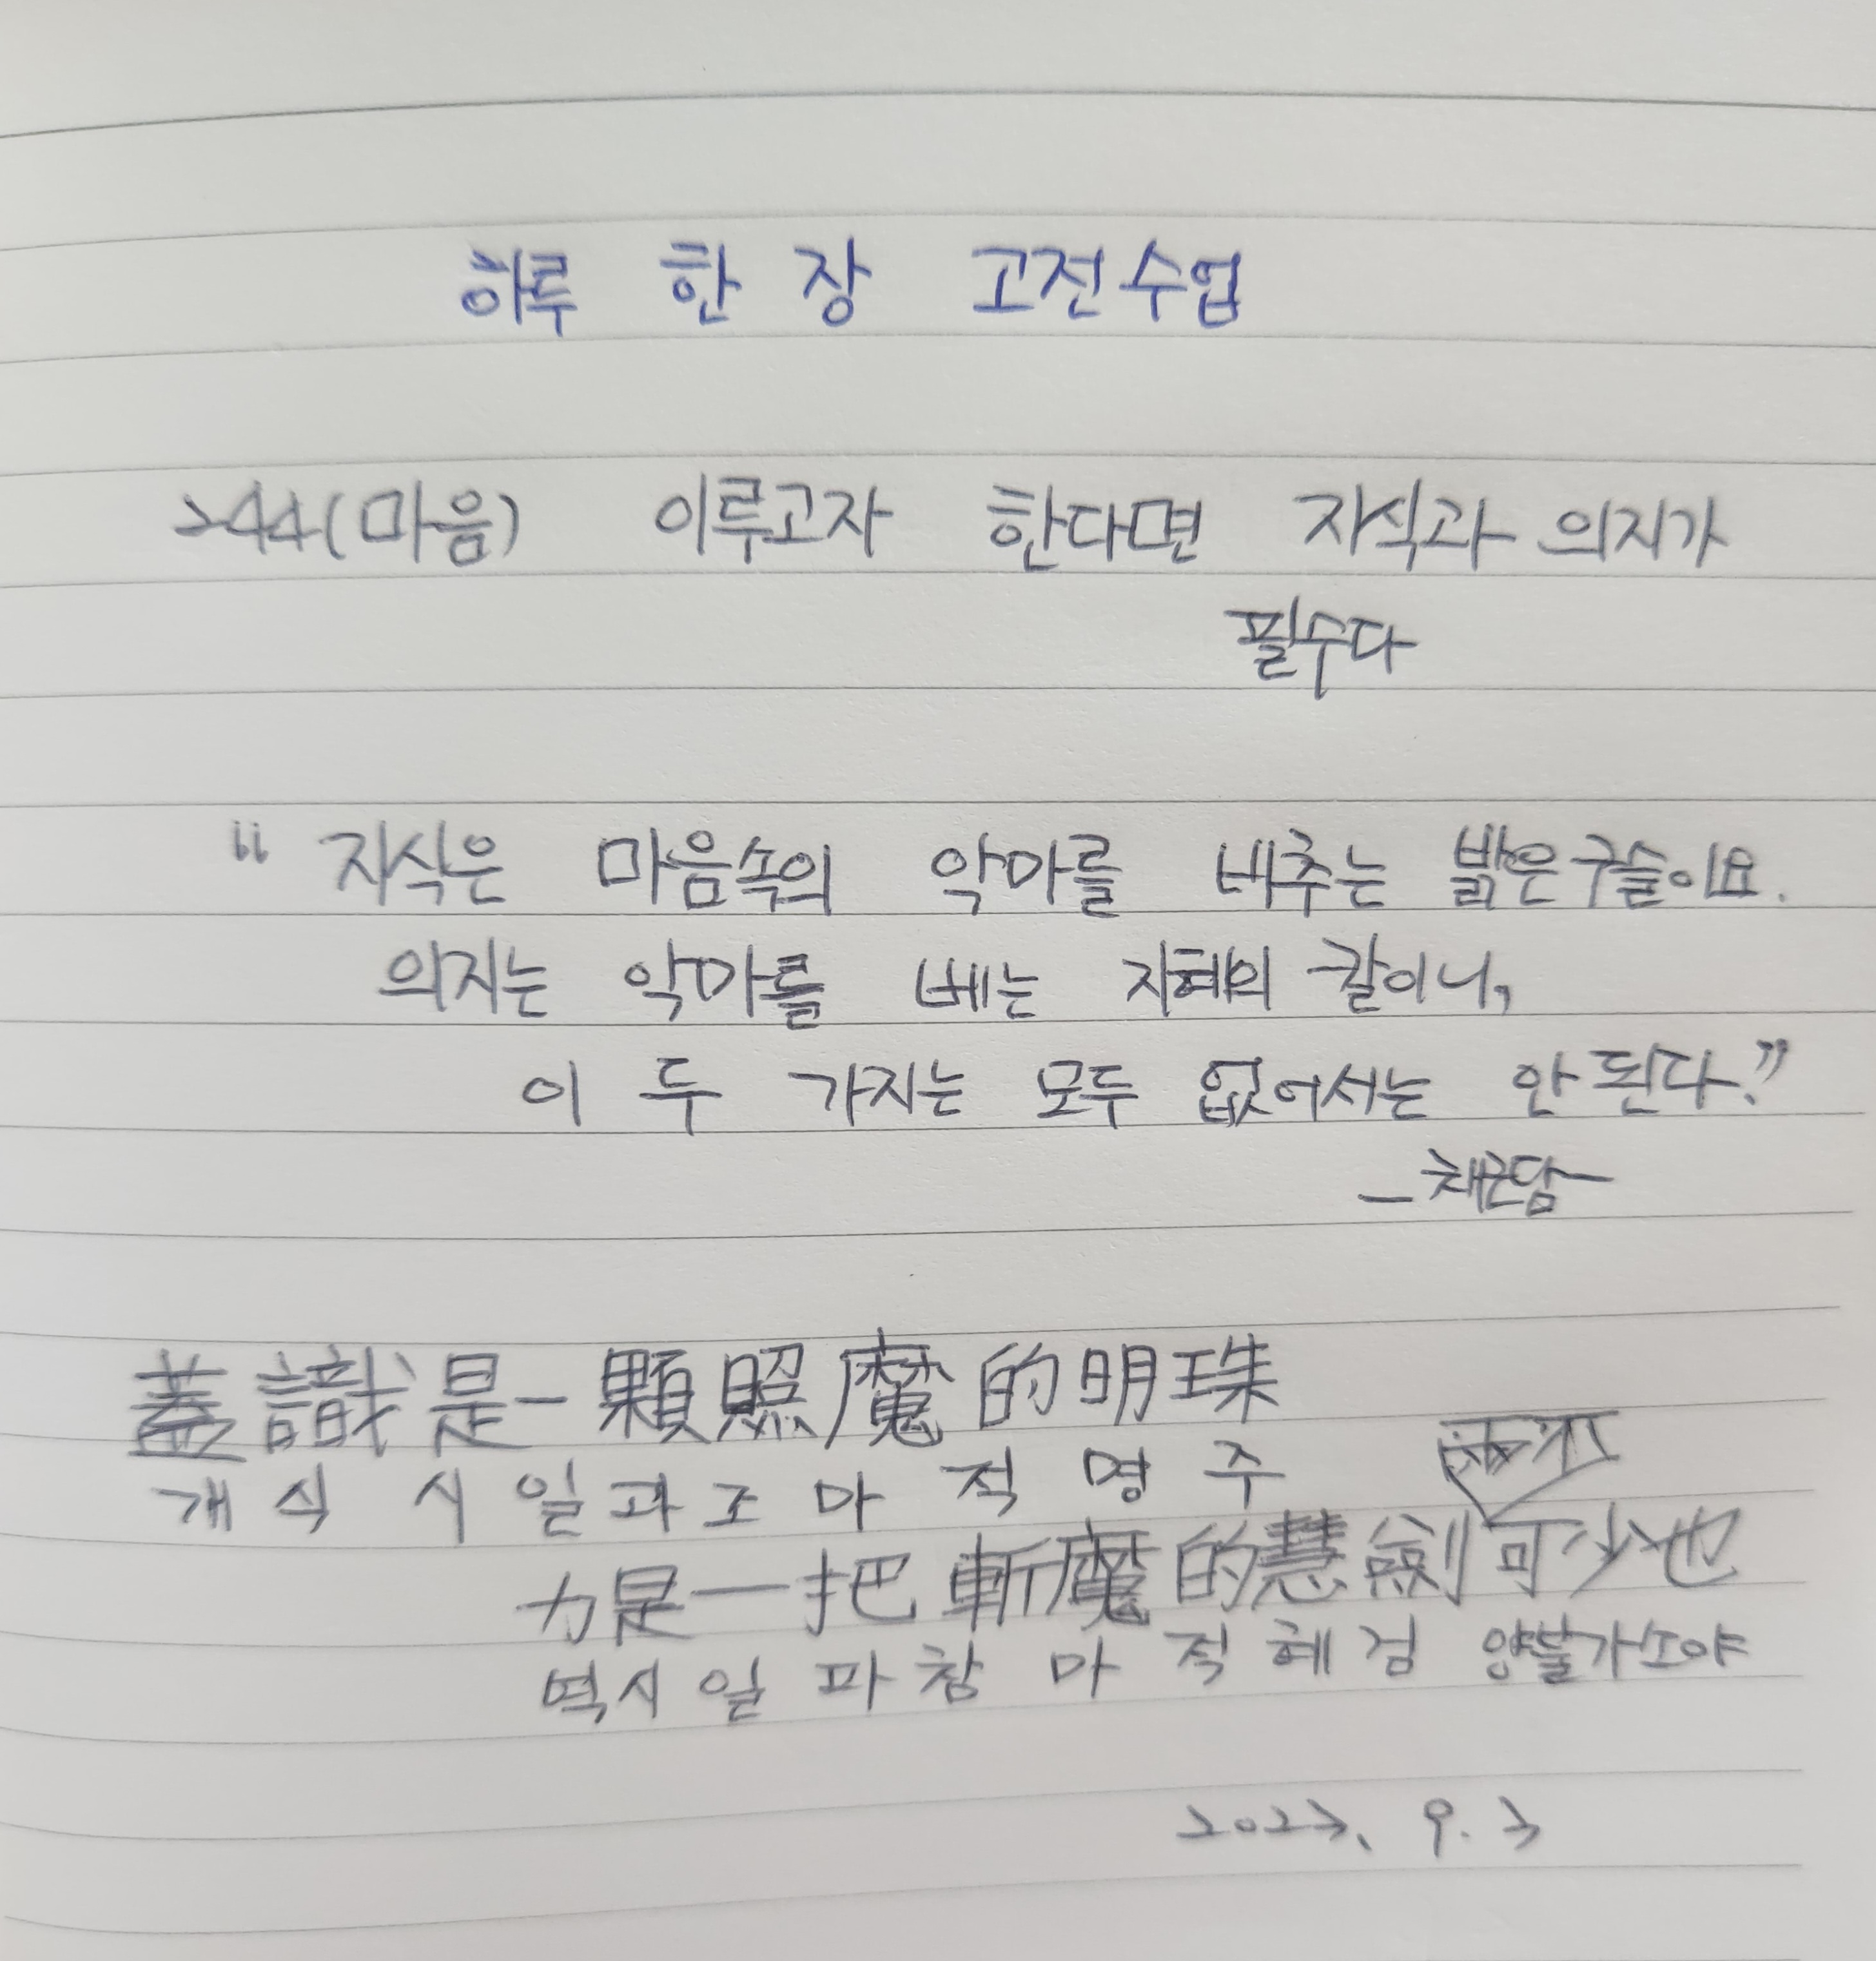 하루 한 장 고전수업
244(마음) 이루고자 한다면 지식과 의지가
필수다
“ 지식은 마음속의 악마를 비추는 밝은 구슬이요.
의지는 악마를 베는 지혜의 칼이니,
이 두 가지는 모두 없어서는 안 된다.”
- 채근담 -
蓋識是一顆照魔的明珠
개식시일과조마적명주
兩不
力是一把斬魔的慧劍可少也
역시일파참마적혜검 양불가소야
2023. 9. 3